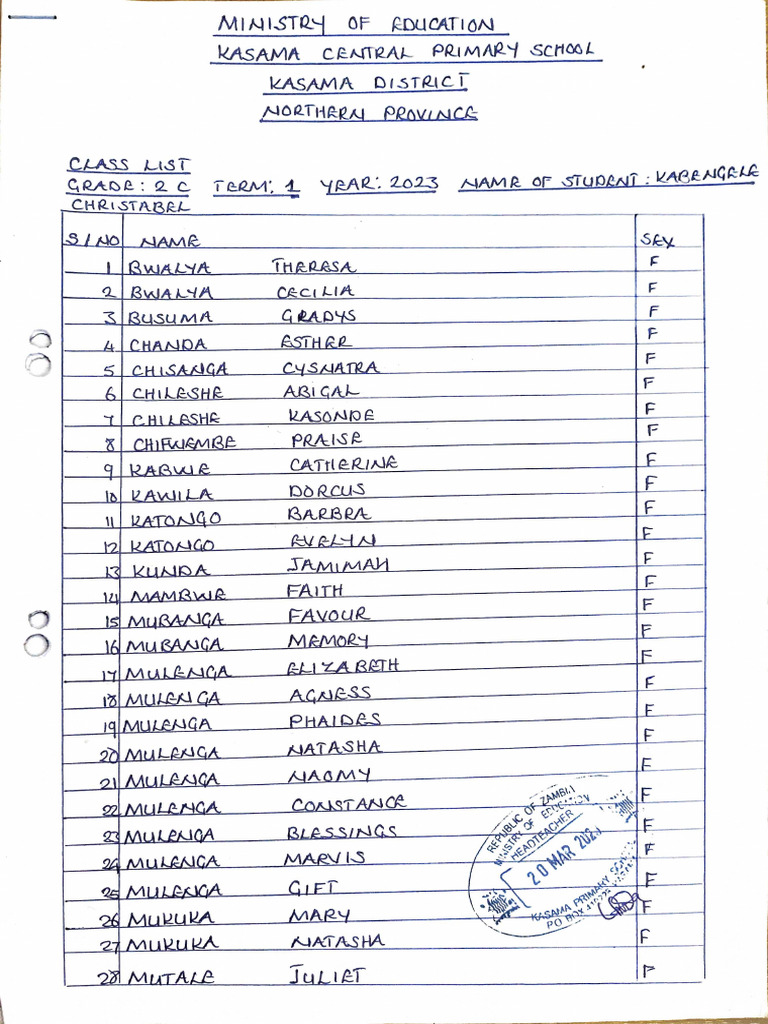 MINISTRY OF EDUCATION
KASAMA CENTRAL PRIMARY SCHOOL
KASAMA DISTRICT
NORTHERN PROVINCE
CLASS LIST
GRADE: 2 C TERM: 1 YEAR: 2023 NAME OF STUDENT: KABENGELE
CHRISTABEL
S/NO NAME SEX
1 BWALYA THERESA F
2 BWALYA CECILIA F
3 BUSUMA GRADYS F
4 CHANDA ESTHER F
5 CHISANGA CYSNATRA F
6 CHILESHE ABIGAL F
7 CHILESHE KASONDE F
8 CHIFWEMBE PRAISE F
9 KABWE CATHERINE F
10 KAWILA DORCUS F
11 KATONGO BARBRA F
12 KATONGO EVELYN F
13 KUNDA JAMIMAH F
14 MAMBWE FAITH F
15 MUBANGA FAVOUR F
16 MUBANGA MEMORY F
17 MULENGA ELIZABETH F
18 MULENGA AGNESS F
19 MULENGA PHAIDES F
20 MULENGA NATASHA F
21 MULENGA NAOMY F
22 MULENGA CONSTANCE F
23 MULENGA BLESSINGS F
24 MULENGA MARVIS F
25 MULENGA GIFT F
26 MUKUKA MARY F
27 MUKUKA NATASHA F
28 MUTALE JULIET F
REPUBLIC OF ZAMBIA
MINISTRY OF EDUCATION
HEADTEACHER
20 MAR
KASAMA PRIMARY
PO BOX